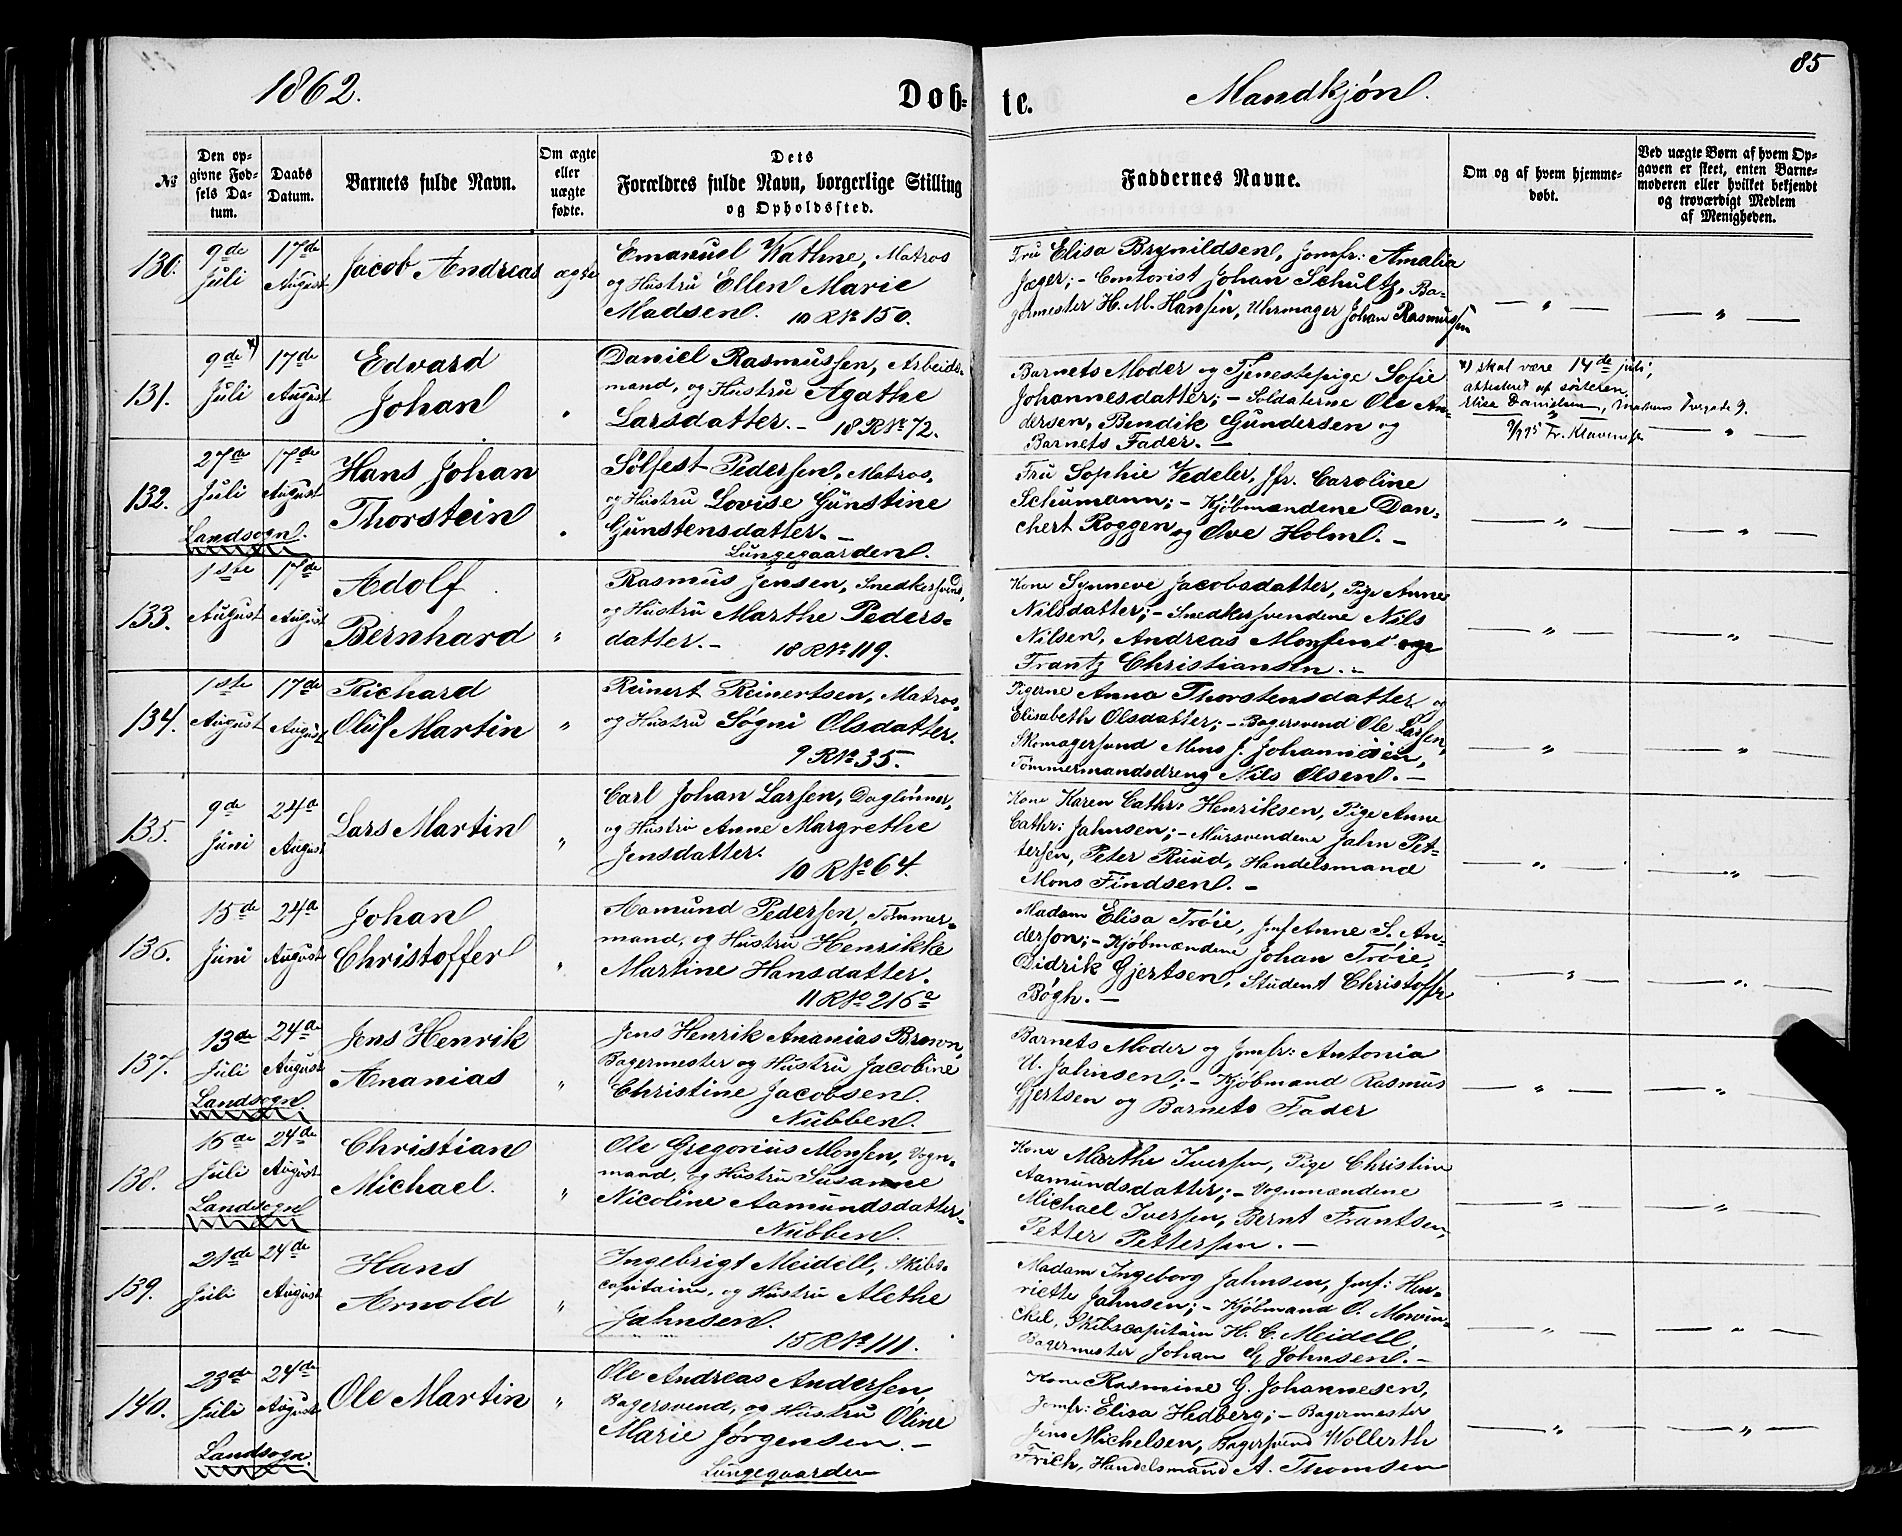 85
1862.
Døb-
te.
Mandkjøn.
№
Den op-
givne Fød-
sels Da-
tum.
Daabs
Datum.
Barnets fulde Navn.
Om ægte
eller
uægte
fødte.
Dets
Forældres fulde Navn, borgerlige Stilling
og Opholdssted.
Faddernes Navne.
Om og af hvem hjemme-
døbt.
Ved uægte Børn af hvem Op-
gaven er skeet, enten Barne-
moderen eller hvilket bekjendt
og troværdigt Medlem
af Menigheden.
130.
9de
Juli
17de
August
Jacob Andreas
ægte
Emanuel Wathne, Matros
og Hustru Ellen Marie
Madsen. 10 R№ 150.
Fru Elisa Brynildsen, Jomfr: Amalia
Jæger; - Contorist Johan Schultz, Ba-
germester H. M. Hansen, Uhrmager Johan Rasmussen
— " —
— " —
131.
9de *)
Juli
17de
August
Edvard
Johan
"
Daniel Rasmussen, Arbeids-
mand, og Hustru Agathe
Larsdatter. - 18 R№ 72.
Barnets Moder og Tjenestepige Sofie
Johannesdatter; - Soldaterne Ole An-
dersen, Bendik Gundersen og
Barnets Fader. -
*) skal være 14de juli,
attesteret af søsteren,
Elise Danielsen,
— " —
132.
27de
Juli
Landsogn.
17de
August
Hans Johan
Thorstein
"
Sølfest Pedersen, Matros,
og Hustru Lovise Gunstine
Gunstensdatter. -
Lungegaarden.
Fru Sophie Vedeler, Jfr. Caroline
Schumann; - Kjøbmændene Dan-
chert Roggen og Ove Holm. -
— " —
— " —
133.
1ste
August
17de
August
Adolf
Bernhard
"
Rasmus Jensen, Snedkersvend,
og Hustru Marthe Peders-
datter. - 18 R№ 119.
Kone Synneve Jacobsdatter, Pige Anne
Nilsdatter; - Snedkersvendene Nils
Nilsen, Andreas Monsen og
Frantz Christiansen. -
— " —
— " —
134.
1ste
August
17de
August
Richard
Oluf Martin
"
Reinert Reinertsen, Matros,
og Hustru Søgni Olsdatter.
9 R№ 35.
Pigerne Anna Thorstensdatter og
Elisabeth Olsdatter; - Bagersvend Ole Larsen,
Skomagersvend Mons J. Johannesen,
Tømmermandsdreng Nils Olsen. -
— " —
— " —
135.
9de
Juni
24d
August
Lars Martin
"
Carl Johan Larsen, Dagløner,
og Hustru Anne Margrethe
Jensdatter.
10 R№ 64.
Kone Karen Cathr: Henriksen, Pige Anne
Cathr: Jahnsen; - Mursvendene Jahn Pet-
tersen, Peter Ruud, Handelsmand
Mons Findsen. -
— " —
— " —
136.
15de
Juni
24d
August
Johan
Christoffer
"
Aamund Pedersen, Tømmer-
mand, og Hustru Henrikke
Martine Hansdatter.
11 R№ 216a
Madam Elisa Trøie, Jmf Anne S. An-
derson; - Kjøbmændene Johan Trøie,
Didrik Gjertsen, Student Christoffr
Bøgh. -
— " —
— " —
137.
13de
Juli
Landsogn
24d
August
Jens Henrik
Ananias
"
Jens Henrik Ananias Brown,
Bagermester og Hustru Jacobine
Christine Jacobsen.
Nubben.
Barnets Moder og Jomfr: Antonia
U. Jahnsen; - Kjøbmand Rasmus
Gjertsen og Barnets Fader
— " —
— " —
138.
15de
Juli
Landsogn
24de
August
Christian
Michael.
"
Ole Gregorius Monsen, Vogn-
mand, og Hustru Susanne
Nicoline Aamundsdatter.
Nubben.
Kone Marthe Iversen, Pige Christine
Aamundsdatter; - Vognmændene
Michael Iversen, Bernt Frantsen,
Petter Pettersen. -
— " —
— " —
139.
21de
Juli
24de
August
Hans
Arnold
"
Ingebrigt Meidell, Skibs-
capitaine, og Hustru Alethe
Jahnsen.
15 R№ 111.
Madam Ingeborg Jahnsen, Jmf: Hen-
riette Jahnsen; - Kjøbmand O. Mowin-
ckel, Skibscapitain H. C. Meidell,
Bagermester Johan G Johnsen. -
— " —
— " —
140.
23de
Juli
Landsogn.
24de
August
Ole Martin
"
Ole Andreas Andersen,
Bagersvend, og Hustru Oline
Marie Jørgensen. -
Lungegaarden
Kone Rasmine G. Johannesen,
Jomfr: Elisa Hedberg; - Bagermester
Jens Michelsen, Bagersvend Wollerth
Frich, Handelsmand A. Thomsen
— " —
— " —